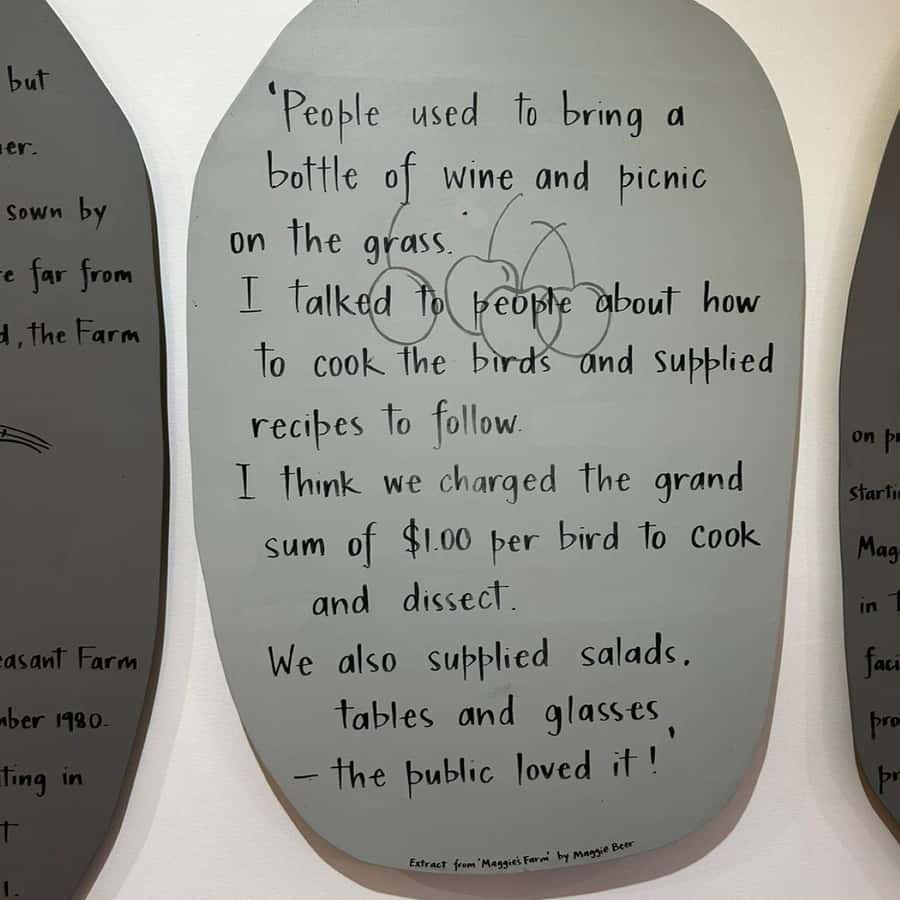 but
er.
sown by
e far from
d, the Farm
easant Farm
mber 1980.
ting in
t
l.
'People used to bring a
bottle of wine and picnic
on the grass.
I talked to people about how
to cook the birds and supplied
recipes to follow.
I think we charged the grand
sum of $1.00 per bird to cook
and dissect.
We also supplied salads.
tables and glasses
– the public loved it!'
Extract from 'Maggie's Farm' by Maggie Beer
on pr
starti
Mag
in t
faci
pro
pr